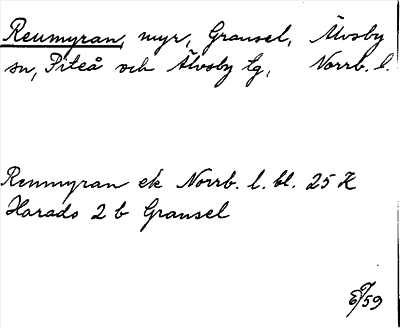 Renmyran, myr, Gransel, Älvsby
sn, Piteå och Älvsby tg, Norrb. l.
Renmyran ek Norrb. l. bl. 25 K
Harads 2 b Gransel
/59